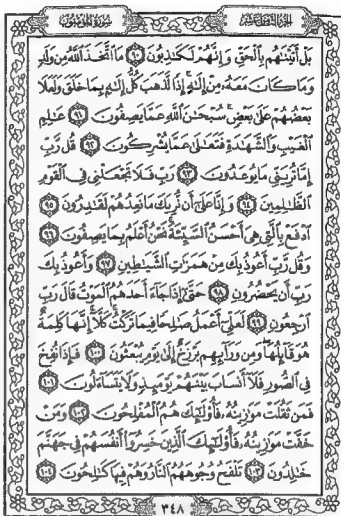 الجزء الثامن عشر سورة المؤمنون
بَلْ أَتَيْنَٰهُم بِٱلْحَقِّ وَإِنَّهُمْ لَكَٰذِبُونَ ٩٠ مَا ٱتَّخَذَ ٱللَّهُ مِن وَلَدٍ
وَمَا كَانَ مَعَهُۥ مِنْ إِلَٰهٍ إِذًا لَّذَهَبَ كُلُّ إِلَٰهٍۭ بِمَا خَلَقَ وَلَعَلَا
بَعْضُهُمْ عَلَىٰ بَعْضٍ سُبْحَٰنَ ٱللَّهِ عَمَّا يَصِفُونَ ٩١ عَٰلِمِ
ٱلْغَيْبِ وَٱلشَّهَٰدَةِ فَتَعَٰلَىٰ عَمَّا يُشْرِكُونَ ٩٢ قُل رَّبِّ
إِمَّا تُرِيَنِّي مَا يُوعَدُونَ ٩٣ رَبِّ فَلَا تَجْعَلْنِي فِي ٱلْقَوْمِ
ٱلظَّٰلِمِينَ ٩٤ وَإِنَّا عَلَىٰٓ أَن نُّرِيَكَ مَا نَعِدُهُمْ لَقَٰدِرُونَ ٩٥
ٱدْفَعْ بِٱلَّتِي هِيَ أَحْسَنُ ٱلسَّيِّئَةَ نَحْنُ أَعْلَمُ بِمَا يَصِفُونَ ٩٦
وَقُل رَّبِّ أَعُوذُ بِكَ مِنْ هَمَزَٰتِ ٱلشَّيَٰطِينِ ٩٧ وَأَعُوذُ بِكَ
رَبِّ أَن يَحْضُرُونِ ٩٨ حَتَّىٰٓ إِذَا جَآءَ أَحَدَهُمُ ٱلْمَوْتُ قَالَ رَبِّ
ٱرْجِعُونِ ٩٩ لَعَلِّيٓ أَعْمَلُ صَٰلِحًا فِيمَا تَرَكْتُ كَلَّآ إِنَّهَا كَلِمَةٌ
هُوَ قَآئِلُهَا وَمِن وَرَآئِهِم بَرْزَخٌ إِلَىٰ يَوْمِ يُبْعَثُونَ ١٠٠ فَإِذَا نُفِخَ
فِي ٱلصُّورِ فَلَآ أَنسَابَ بَيْنَهُمْ يَوْمَئِذٍ وَلَا يَتَسَآءَلُونَ ١٠١
فَمَن ثَقُلَتْ مَوَٰزِينُهُۥ فَأُو۟لَٰٓئِكَ هُمُ ٱلْمُفْلِحُونَ ١٠٢ وَمَنْ
خَفَّتْ مَوَٰزِينُهُۥ فَأُو۟لَٰٓئِكَ ٱلَّذِينَ خَسِرُوٓا۟ أَنفُسَهُمْ فِي جَهَنَّمَ
خَٰلِدُونَ ١٠٣ تَلْفَحُ وُجُوهَهُمُ ٱلنَّارُ وَهُمْ فِيهَا كَٰلِحُونَ ١٠٤
٣٤٨